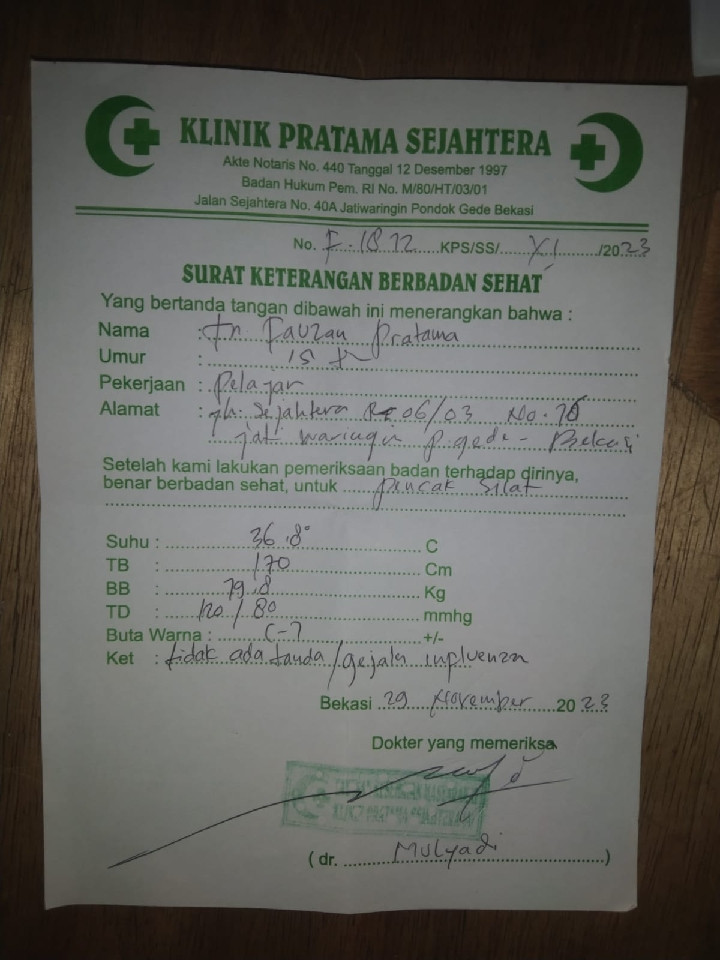 KLINIK PRATAMA SEJAHTERA
Akte Notaris No. 440 Tanggal 12 Desember 1997
Badan Hukum Pem. RI No. M/80/HT/03/01
Jalan Sejahtera No. 40A Jatiwaringin Pondok Gede Bekasi
No. F.1872 KPS/SS/ XI /2023
SURAT KETERANGAN BERBADAN SEHAT
Yang bertanda tangan dibawah ini menerangkan bahwa :
Nama : Fauzan Pratama
Umur : 15
Pekerjaan : Pelajar
Alamat : Sejahtera Rt 06/03 No.
jati waringin p.gede - Bekasi
Setelah kami lakukan pemeriksaan badan terhadap dirinya,
benar berbadan sehat, untuk pencak silat
Suhu : 36.8° C
TB : 170 Cm
BB : 79.8 Kg
TD : 120 / 80 mmhg
Buta Warna : (-) +/-
Ket : tidak ada tanda / gejala influenza
Bekasi 29 November 2023
Dokter yang memeriksa
(dr. Mulyadi )